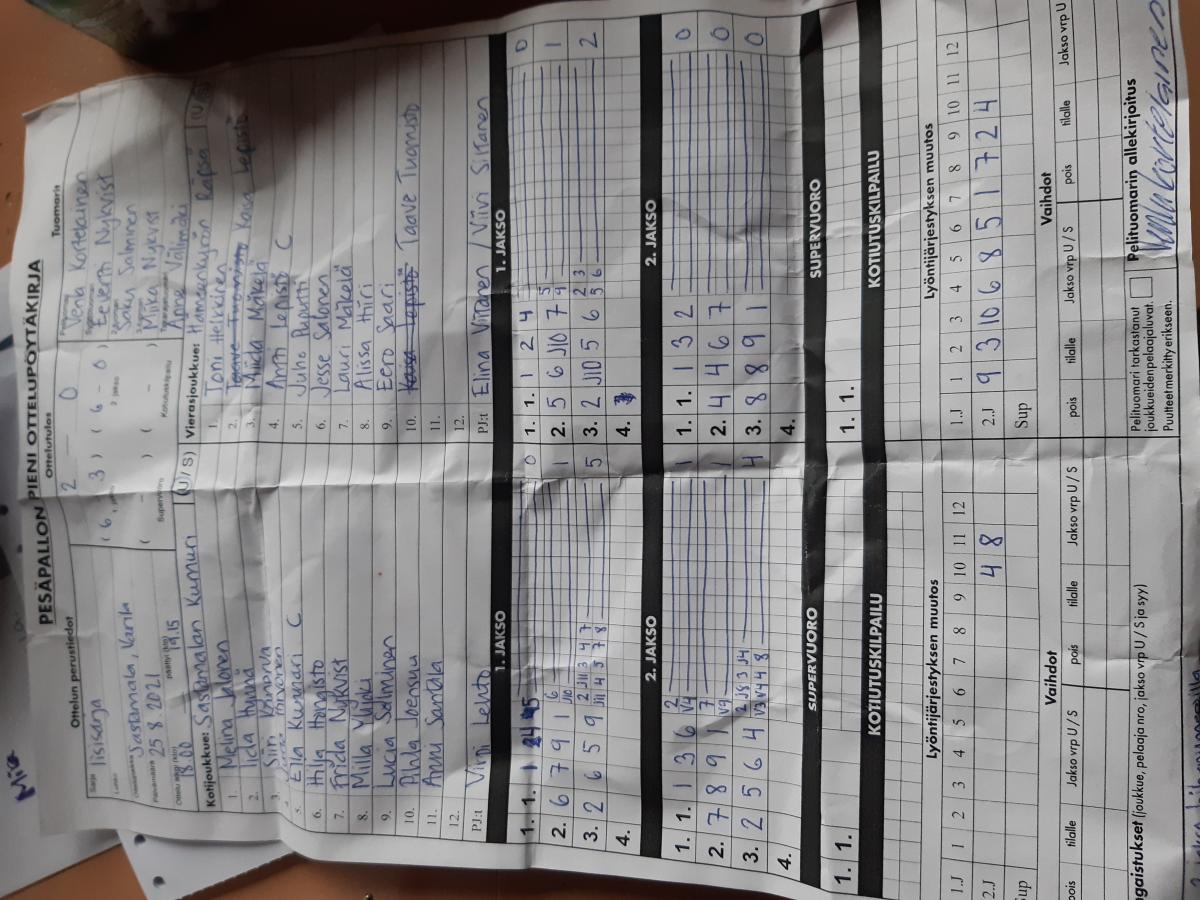 PESÄPALLON PIENI OTTELUPÖYTÄKIRJA
Ottelun perustiedot
Ottelutulos
Tuomarit
Sarja
Iisisarja
2 — 0
( 6 - 3 ) ( 6 - 0 )
1. jakso
2. jakso
Lohko
Ottelupaikka Sastamala, Varila
Päivämäärä 25.8.2021
( - ) ( - )
Supervuoro
Kotiutuskilpailu
Ottelu alkoi (klo) 18.00
päättyi (klo) 19.15
Veena Korteläinen
Eevertti Nykvist
Satu Salminen
Miika Nykvist
Anne Välimäki
Kotijoukkue: Sastamalan Kumuri (U / S)
1. Melina Jalonen
2. Iida
3. Siiri
5. Ella Kumuri C
6. Hilla Hongisto
7. Frida Nykvist
8. Milla Ylijoki
9. Lucia Salminen
10. Pihla Joensuu
11. Anni Santala
12.
PJ:t Virpi Lehto
Vierasjoukkue: Hämeenkyrön Räpsä (U / S)
1. Toni Heikkinen
2. Taave Tuomisto Kaisa Lepistö
3. Miida Mäkelä
4. Antti Lepistö
5. Juho Papatti C
6. Jesse Salonen
7. Lauri Mäkelä
8. Alissa Hiiri
9. Eero Saari
10. Kaisa Lepistö Taave Tuomisto
11.
12.
PJ:t Elina Virtanen / Viivi Siltanen
1. JAKSO
1. 1. 1 0
2. 6 7 9 1 6 J10 1
3. 2 6 5 9 2 J11 J11 3 4 4 5 7 7 8 5
4.
1. JAKSO
1. 1. 1 2 4 0
2. 5 6 J10 7 5 9 1
3. 2 J10 5 6 2 5 3 6 2
4.
2. JAKSO
1. 1. 1 3 6 2 V4 1
2. 7 8 9 1 7 V9 1
3. 2 5 6 4 2 V3 J8 V4 3 4 J4 8 4
4.
2. JAKSO
1. 1. 1 3 2 0
2. 4 4 6 7 0
3. 8 8 9 1 0
4.
SUPERVUORO
1. 1.
SUPERVUORO
1. 1.
KOTIUTUSKILPAILU
KOTIUTUSKILPAILU
Lyöntijärjestyksen muutos
1.J 1 2 3 4 5 6 7 8 9 10 11 12
2.J 4 8
Sup
Lyöntijärjestyksen muutos
1.J 1 2 3 4 5 6 7 8 9 10 11 12
2.J 9 3 10 6 8 5 1 7 2 4
Sup
Vaihdot
pois tilalle Jakso vrp U / S pois tilalle Jakso vrp U / S
Vaihdot
pois tilalle Jakso vrp U / S pois tilalle Jakso vrp U
ngaistukset (joukkue, pelaaja nro, jakso vrp U / S ja syy)
Pelituomari tarkastanut
joukkueidenpelaajaluvat.
Puutteetmerkittyerikseen.
Pelituomarin allekirjoitus